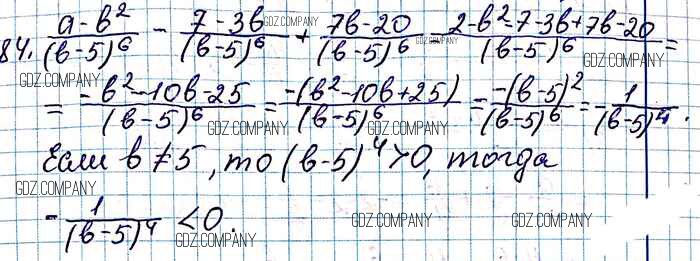 84. (a-b²)/(b-5)⁶ - (7-3b)/(b-5)⁶ + (7b-20)/(b-5)⁶ (2-b²-7-3b+7b-20)/(b-5)⁶ =
= (-b²-10b-25)/(b-5)⁶ = (-(b²-10b+25))/(b-5)⁶ = (-(b-5)²)/(b-5)⁶ = -1/(b-5)⁴.
Если b≠5, то (b-5)⁴>0, тогда
-1/(b-5)⁴ <0.
GDZ.COMPANY
GDZ.COMPANY
GDZ.COMPANY
GDZ.COMPANY
GDZ.COMPANY
GDZ.COMPANY
GDZ.COMPANY
GDZ.COMPANY
GDZ.COMPANY
GDZ.COMPANY
GDZ.COMPANY
GDZ.COMPANY
GDZ.COMPANY
GDZ.COMPANY